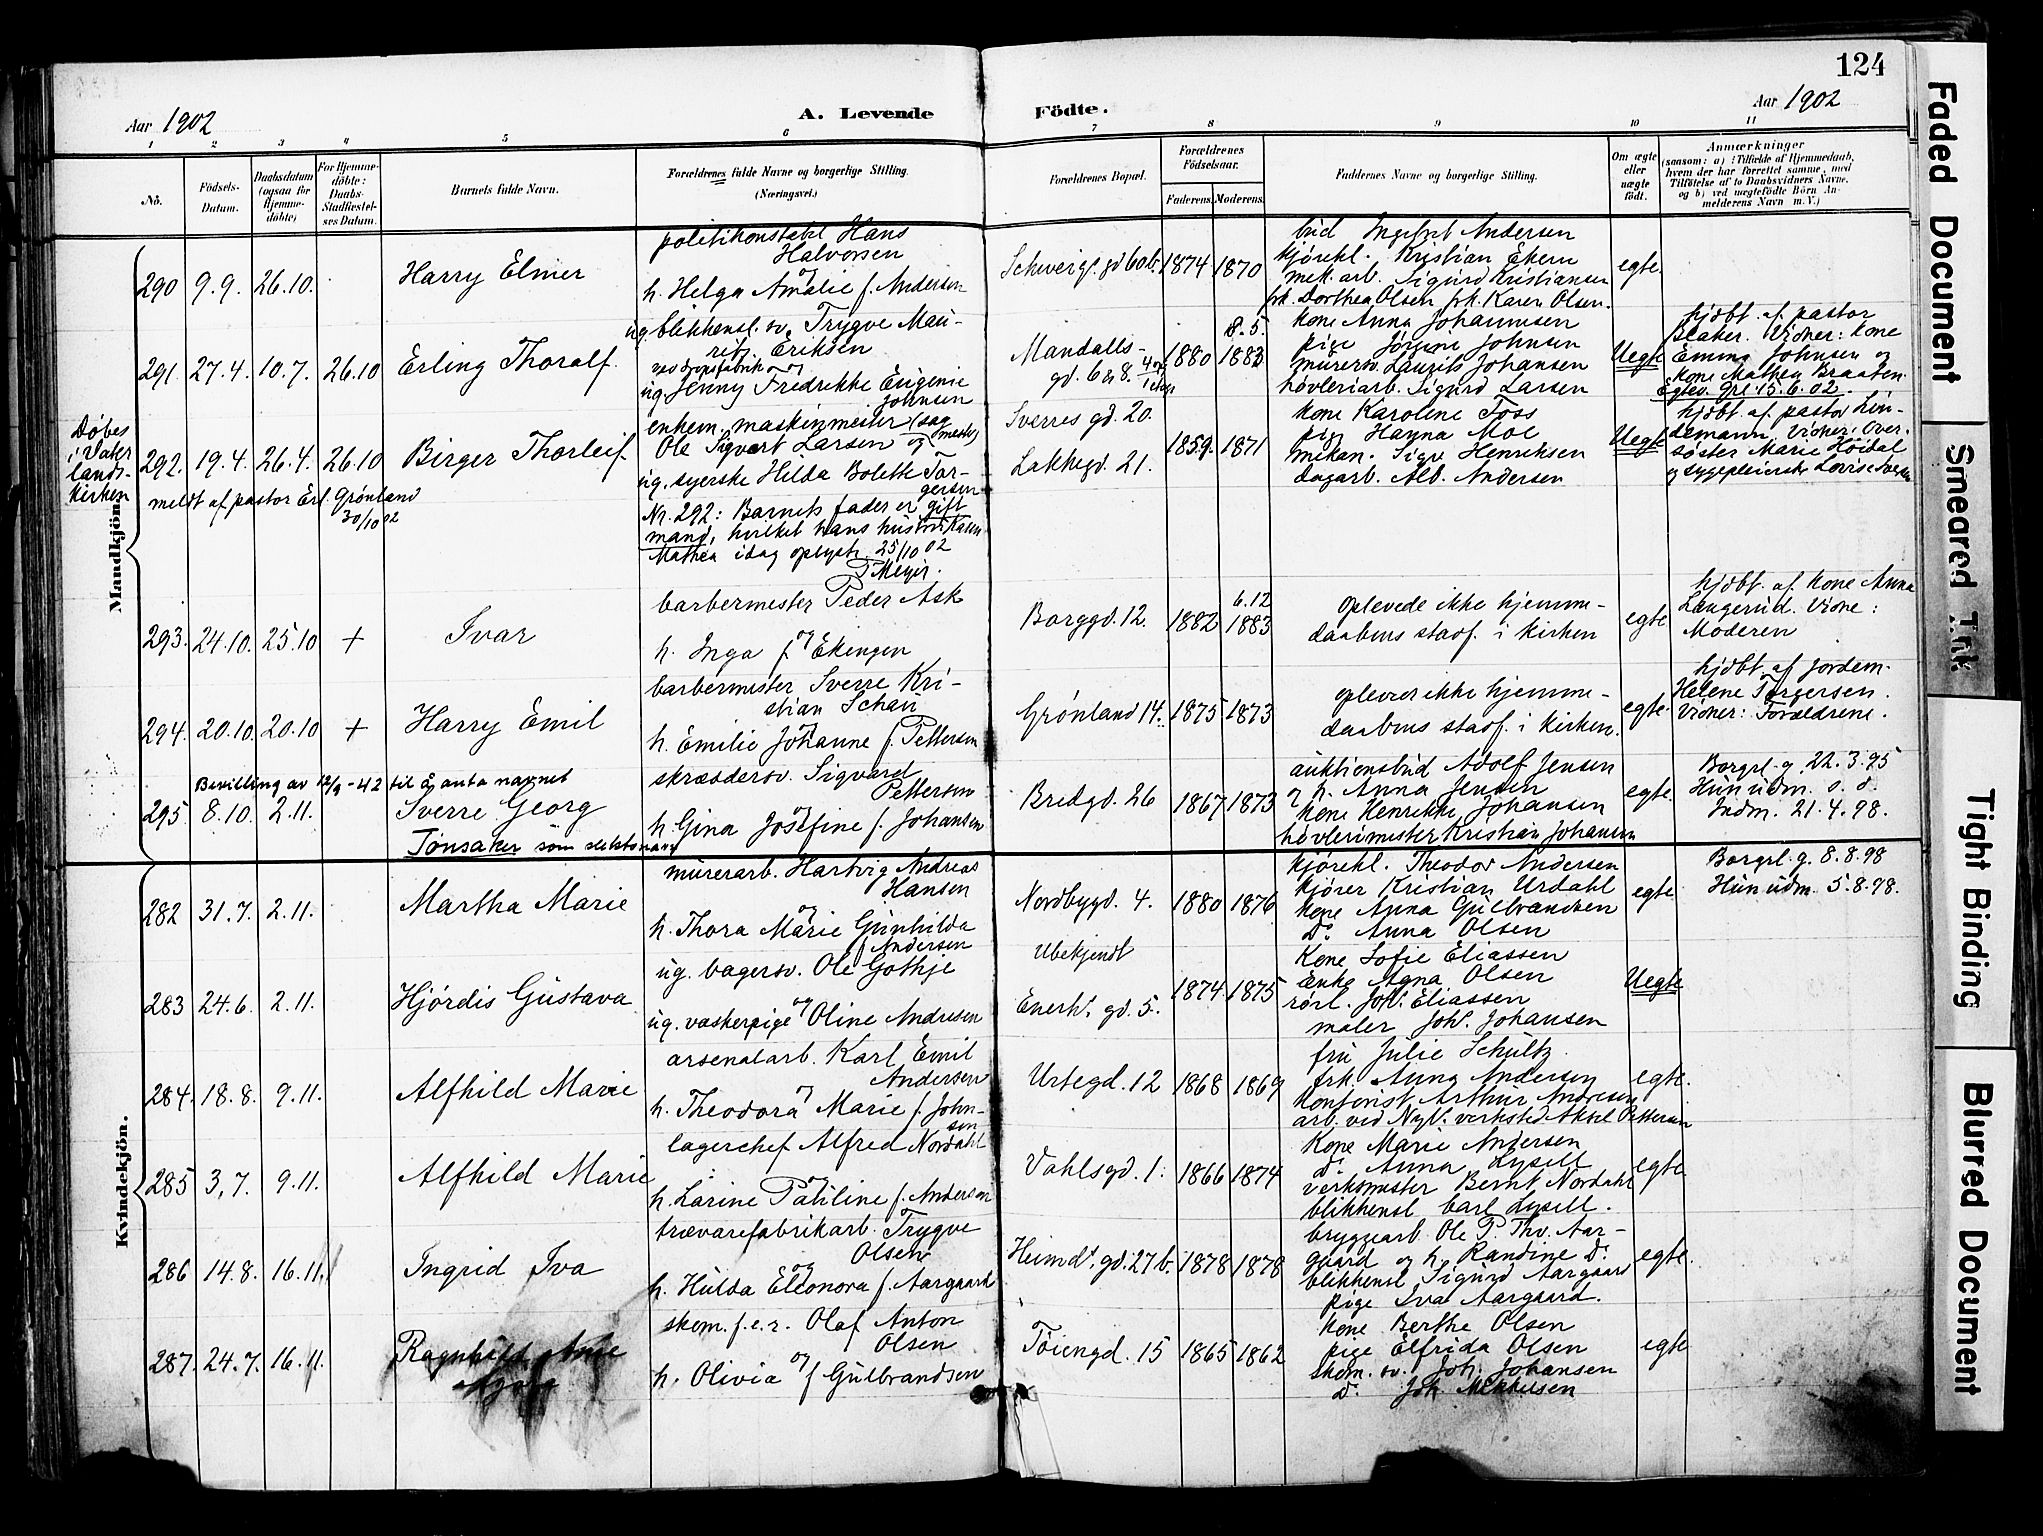 124
Aar 1902
A. Levende Födte.
Aar 1902
1 2 3 4 5 6 7 8 9 10 11
No.
Födsels-Datum.
Daabsdatum (ogsaa for Hjemme-döbte)
For Hjemme-döbte: Daabs-Stadfæstel-ses Datum.
Barnets fulde Navn.
Forældrenes fulde Navne og borgerlige Stilling. (Næringsvei.)
Forældrenes Bopæl.
Forældrenes Födselsaar.
Faderens. Moderens.
Faddernes Navne og borgerlige Stilling.
Om ægte eller uægte födt.
Anmærkninger
(saasom: a) i Tilfælde af Hjemmedaab, hvem der har forrettet samme, med Tilföielse af to Daabsvidners Navne, og b) ved uægtefödte Börn An-melderens Navn m. V.)
Mandkjön.
290 9.9. 26.10. Harry Elmer
politikonstabel Hans
Halvorsen
og
h. Helga Amalie f. Andersen
Schweigs. gd 60b. 1874 1870
bud Ingebret Andersen
kjørekl. Kristian Ekern
mek. arb. Sigurd Kristiansen
frk. Dorthea Olsen frk. Karen Olsen.
egte
291. 27.4. 10.7. 26.10 Erling Thoralf.
ug. blikkensl. sv. Trygve Mau-
ritz Eriksen
og
ug. Jenny Fredrikke Eugenie
Johnsen
Mandalls-
gd. 6 & 8.
1880 8.5. 1883
kone Anna Johannesen
pige Jörgine Johnsen
murersv. Lauritz Johansen
høvleriarb. Sigurd Larsen
Uegte
hjdbt. af pastor
Blaker. Vidner: kone
Emma Johnsen og
kone Mathea Braaten.
Egtev. Grl. 15.6.02.
Döbes
i Vater
lands-
kirken
292. 19.4. 26.4. 26.10 Birger Thorleif.
meldt af pastor Erl. Grønland
30/10 02
enkem. maskinmester (sag
mester)
Ole Sigvart Larsen og
ug. syerske Hilda Bolette Tor-
gersen
Nr. 292: Barnets fader er gift
mand, hvilket hans hustru Karen
Mathea idag oplyste. 25/10 02
T Meyer.
Sverres gd. 20.
Lakkegd. 21.
1859. 1871
kone Karoline Foss
pige Hagna Moe
mekan. Sigv. Henriksen
dagarb. Alb. Andersen
Uegte
hjdbt. af pastor Lin-
demann. Vidner: Over-
søster Marie Høidal
og sygepleierske Lovise Iversen
293. 24.10. 25.10 + Ivar
barbermester Peder Ask
og
h. Inga f. Ekengen
Borggd. 12. 1882 6.12 1883
oplevede ikke hjemme-
daabens stadf. i kirken
egte
hjdbt. af kone Anna
Langerud. Vidne:
Moderen
294. 20.10. 20.10 + Harry Emil
barbermester Sverre Kri-
stian Schau
og
h. Emilie Johanne f. Pettersen
Grønland 14. 1875 1873
oplever ikke hjemme-
daabens stadf. i kirken.
egte.
hjdbt. af jordem.
Helene Torgersen.
Vidner: Forældrene.
Bevilling av 12/9-42 til å anta navnet
295. 8.10. 2.11. Sverre Georg
Tonsaker som slektsnavn
skrædersv. Sigvard
Pettersen
og
h. Gina Josefine f. Johansen
Bredgd. 26 1867 1873
auktionsbud Adolf Jensen
h. Anna Jensen
kone Henrikke Johansen
høvlerimester Kristian Johansen
egte.
Borgrl. g. 22.3.95
Hun udm. s. d.
Indm. 21.4.98.
Kvindekjön.
282 31.7. 2.11. Martha Marie
murerarb. Hartvig Andreas
Hansen
og
h. Thora Marie Gunhilda
f. Andersen
Nordbygd. 4. 1880 1876
kjørekl. Theodor Andersen
kjører Kristian Urdahl
kone Anna Gulbrandsen
Do. Anna Olsen
egte.
Borgrl. g. 8.8.98
Hun udm. 5.8.98.
283 24.6. 2.11. Hjørdis Gustava
ug. bagersv. Ole Gothje
og
ug. vaskerpige Oline Andresen
Ubekjendt
Enerh. gd. 5.
1874. 1875
Kone Sofie Eliassen
enke Agna Olsen
rørl. Joh. Eliassen
maler Joh. Johansen
Uegte
284. 18.8. 9.11. Alfhild Marie
arsenalarb. Karl Emil
Andersen
og
h. Theodora Marie f. John-
sen
Urtegd. 12 1868 1869
fru Julie Schultz.
frk. Anna Andersen
kontorist Arthur Andresen
arb. ved Nyl. verksted Aksel Pettersen
egte.
285 3.7. 9.11. Alfhild Marie
lagerchef Alfred Nordahl
og
h. Larine Pauline f. Andersen
Vahlsgd. 1. 1866 1874
Kone Marie Andersen
Do. Anna Lysell
verksmester Bernt Nordahl
blikkensl. Carl Lysell.
egte.
286 14.8. 16.11. Ingrid Iva
trævarefabrikarb. Trygve
Olsen
og
h. Hulda Eleonora f. Aargaard
Heimd. gd. 27b. 1878 1878
bryggearb. Ole P. Thv. Aar-
gaard og h. Randine Do.
blikkensl. Sigurd Aargaard
pige Iva Aargaard.
egte.
287. 24.7. 16.11. Ragnhild
skom. f. e. r. Olaf Anton
Olsen
og
h. Olivia f. Gulbrandsen
Töiengd. 15 1865 1862
kone Berthe Olsen
pige Elfrida Olsen
skom. sv. Joh. Johansen
Do. Joh. Mikkelsen
egte
Faded Document
Smeared Ink
Tight Binding
Blurred Document